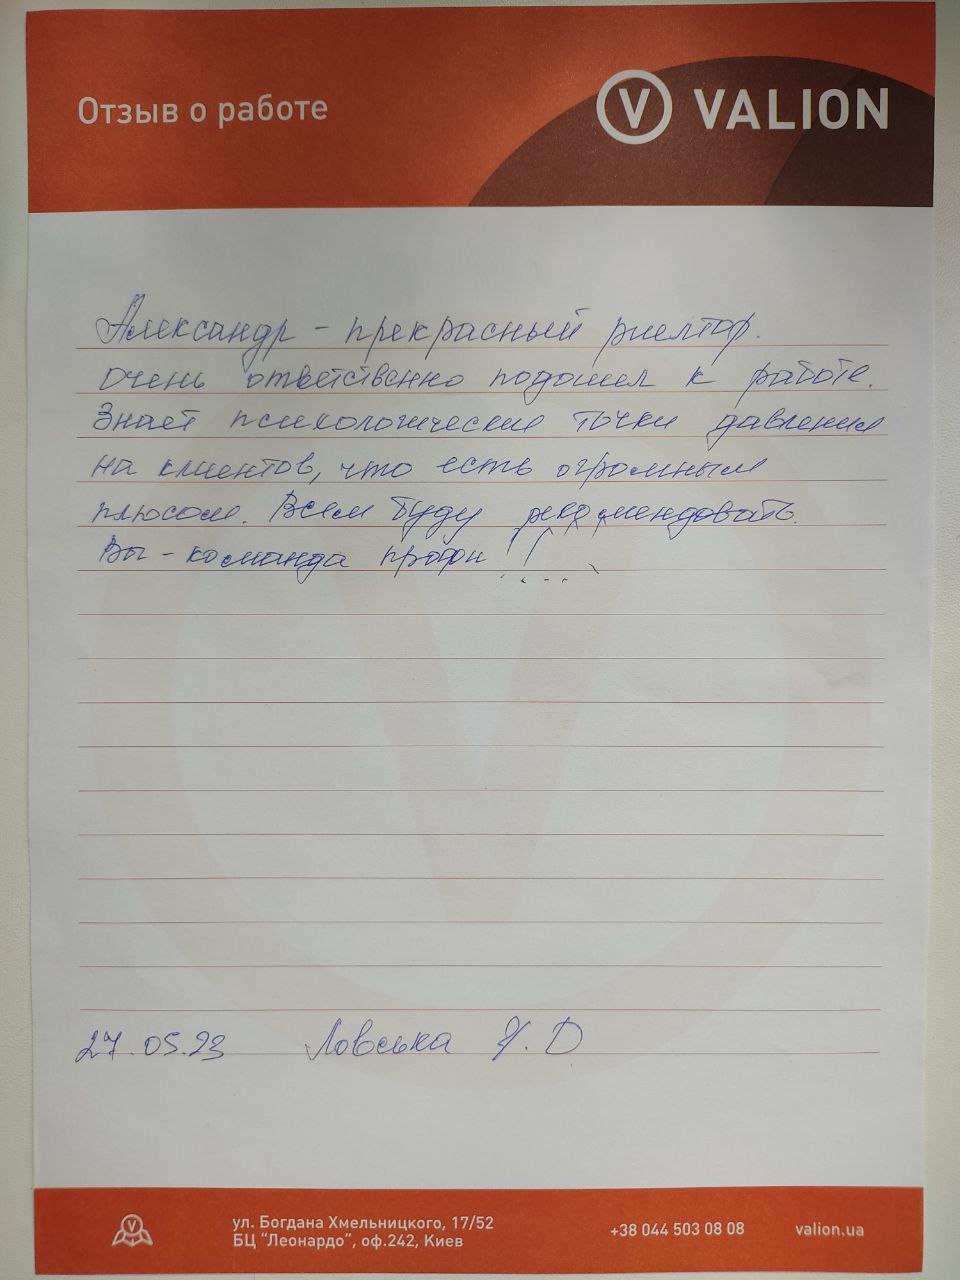 Отзыв о работе
VALION
Александр - прекрасный риелтор.
Очень ответственно подошел к работе.
Знает психологические точки давления
на клиентов, что есть огромным
плюсом. Всем буду рекомендовать.
Вы - команда профи!!
27.05.23 Ловська Н.D
ул. Богдана Хмельницкого, 17/52
БЦ "Леонардо", оф.242, Киев
+38 044 503 08 08
valion.ua